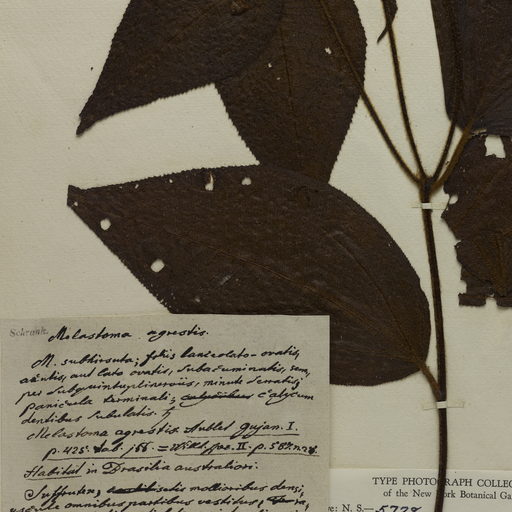 Schrank. Melastoma agrestis.
M. subhirsuta; foliis lanceolato-ovatis,
acutis, aut lato ovatis, subacuminatis, sem,
per subquintuplinerviis, minute serratis,
panicula terminali; calycum
dentibus subulatis. ♄
Melastoma agrestis Aublet Gujan. I.
p. 425. tab. 166. = Willd. spec. II. p. 587. n. 28.
Habitat in Brasilia australiori.
Suffrutex, mollioribus densi,
uscule omnibus partibus vestitus,
TYPE PHOTOGRAPH COLLEC
of the New York Botanical Ga
e: N. S.—5778